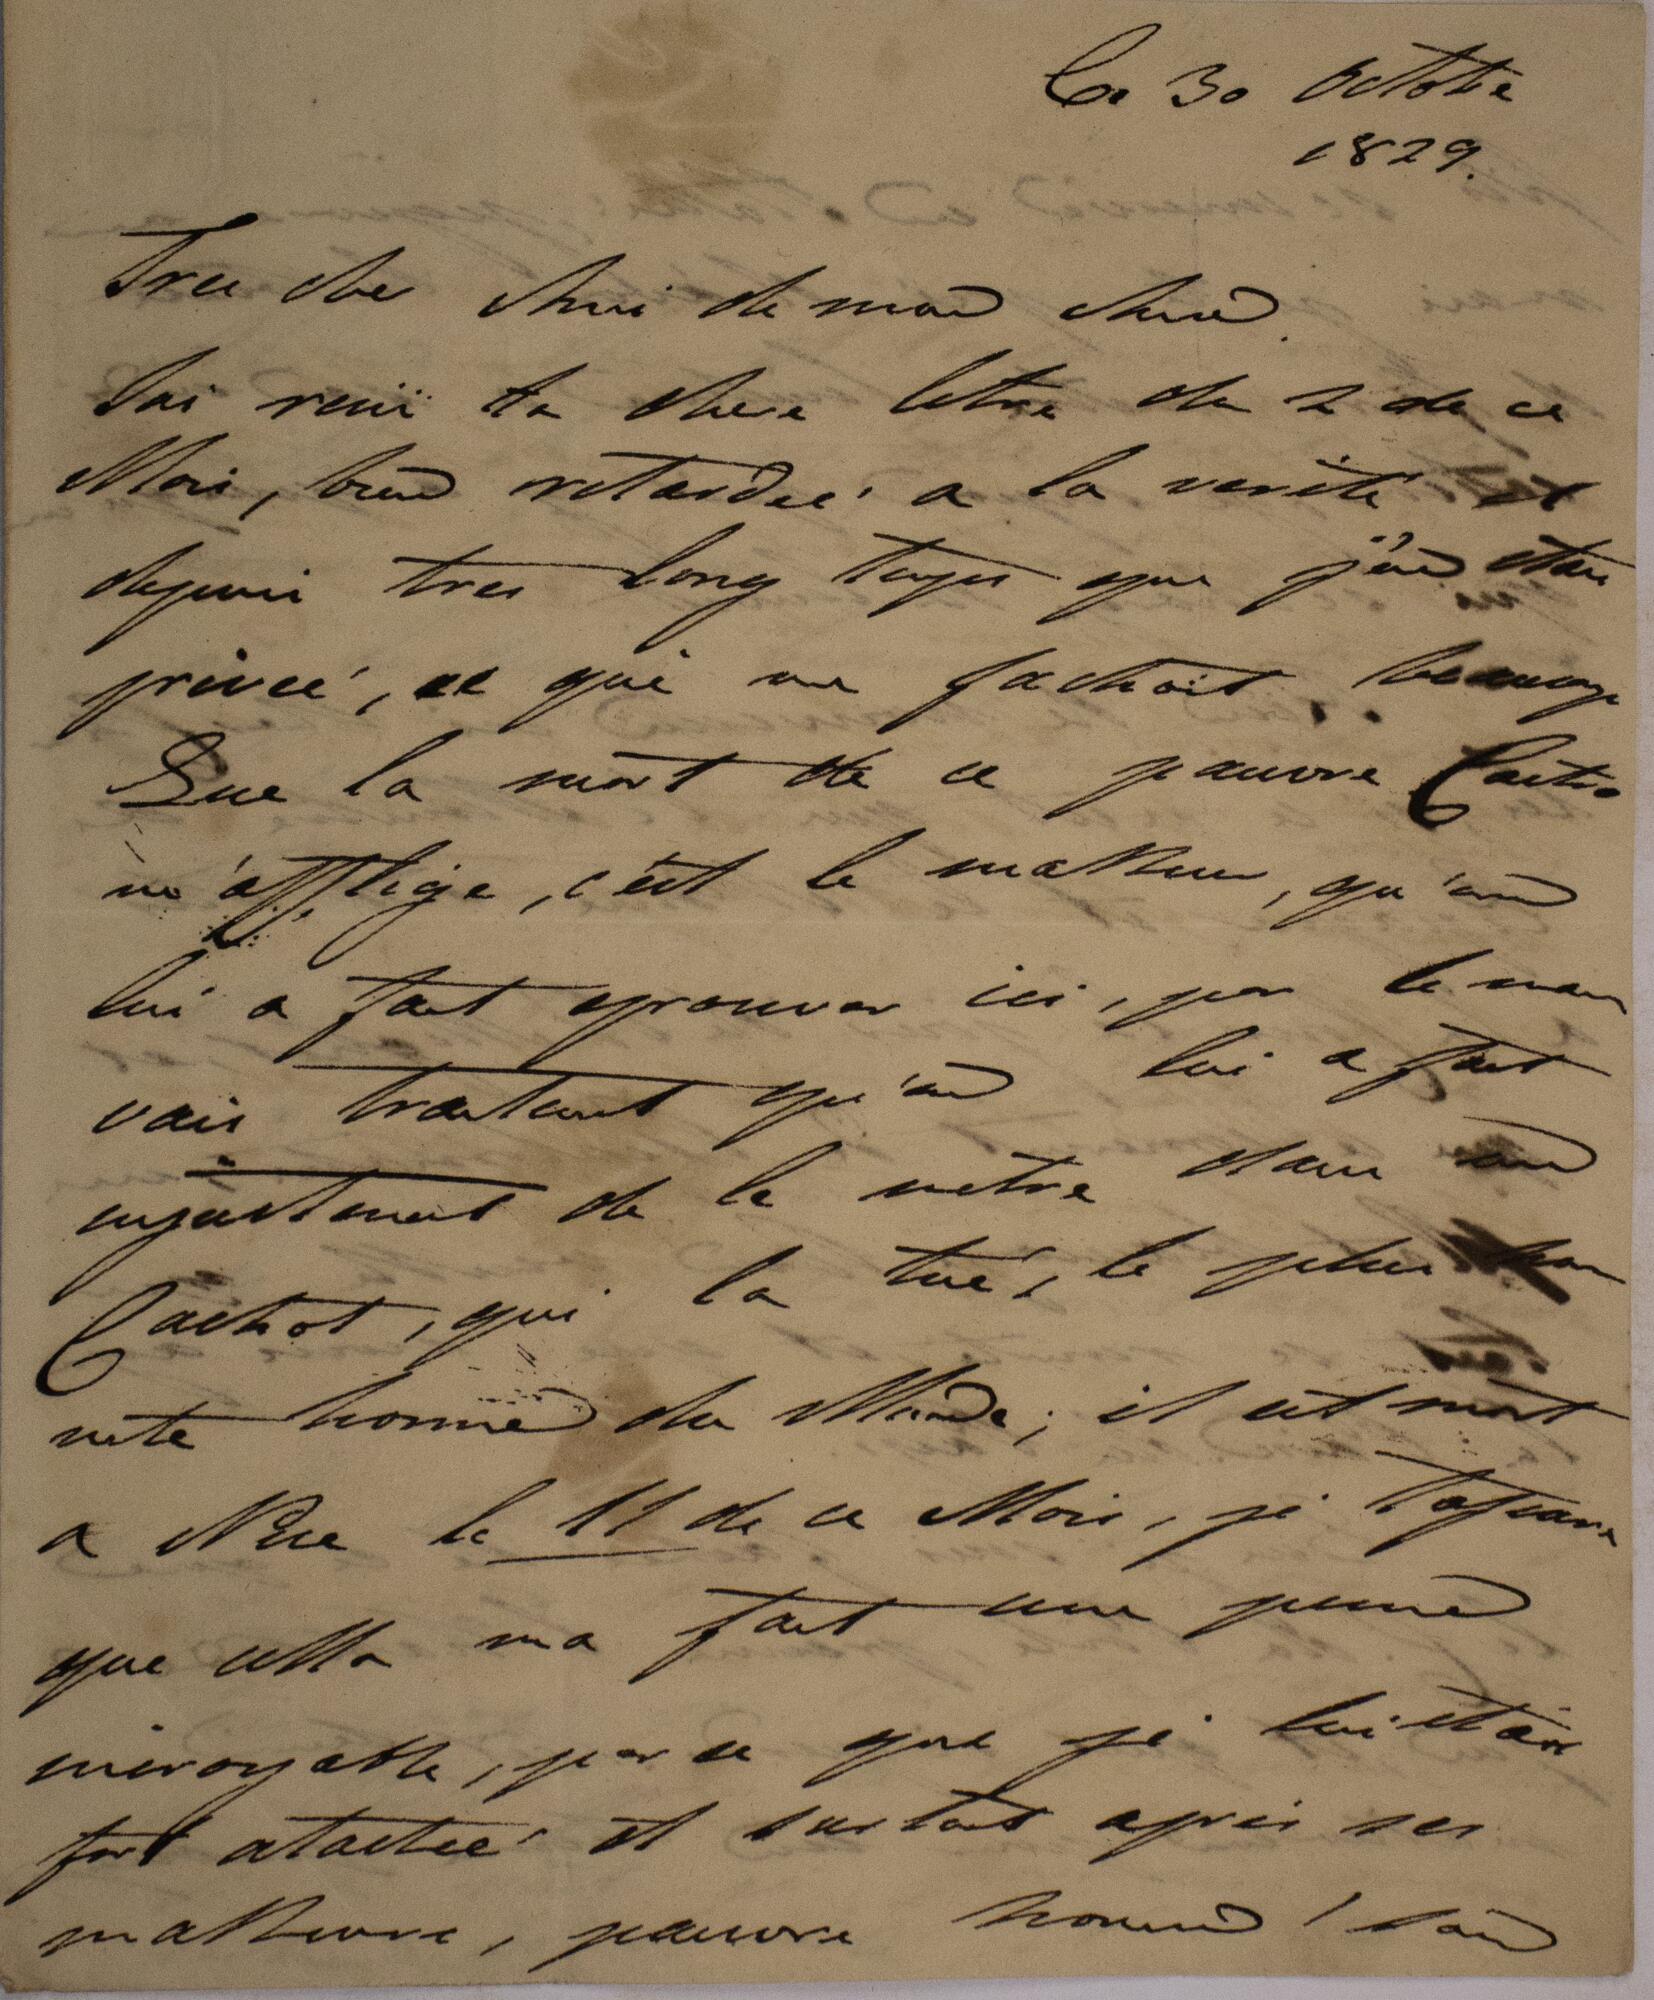 Ce 30 Octobre
1829.
Tres cher Ami de mon Ame.
J'ai reçü ta chere letre du 2 de ce
Mois, bien retardeé a la verité et
depuis tres long tems que j'en etois
priveé, ce qui me fachoit beaucoup
Que la mort de ce pauvre Castro
m'afflige, c'est le malheur, qu'on
lui a fait eprouver ici, par le mau
vais traitement qu'on lui a fait
injustement de le metre dans un
Cachot, qui la tué, le plus hon
nete homme du Monde; il est mort
a Nice le 11 de ce Mois, je t'assure
que cella ma fait une peine
incroyable, par ce que je lui etois
fort atacheé et surtout apres ses
malheurs, pauvre homme! son